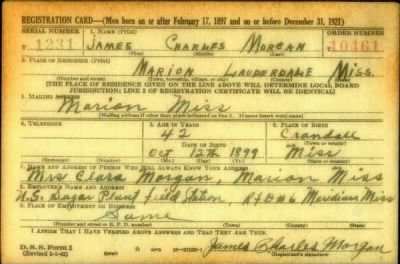 REGISTRATION CARD—(Men born on or after February 17, 1897 and on or before December 31, 1921)
SERIAL NUMBER 1. NAME (Print) ORDER NUMBER
T 1231 JAMES CHARLES MORGAN 10161
(First) (Middle) (Last)
2. PLACE OF RESIDENCE (Print)
MARION LAUDERDALE MISS.
(Number and street) (Town, township, village, or city) (County) (State)
[THE PLACE OF RESIDENCE GIVEN ON THE LINE ABOVE WILL DETERMINE LOCAL BOARD
JURISDICTION; LINE 2 OF REGISTRATION CERTIFICATE WILL BE IDENTICAL]
3. MAILING ADDRESS
Marion Miss
[Mailing address if other than place indicated on line 2. If same insert word same]
4. TELEPHONE 5. AGE IN YEARS 6. PLACE OF BIRTH
42 Crandall
DATE OF BIRTH (Town or county)
Oct 12th 1899 Miss
(Exchange) (Number) (Mo.) (Day) (Yr.) (State or country)
7. NAME AND ADDRESS OF PERSON WHO WILL ALWAYS KNOW YOUR ADDRESS
Mrs Clara Morgan, Marion Miss
8. EMPLOYER'S NAME AND ADDRESS
U.S. Sugar Plant Field Station, Meridian Miss
9. PLACE OF EMPLOYMENT OR BUSINESS
Same
(Number and street or R. F. D. number) (Town) (County) (State)
I AFFIRM THAT I HAVE VERIFIED ABOVE ANSWERS AND THAT THEY ARE TRUE.
D. S. S. Form 1
(Revised 1-1-42) GPO James Charles Morgan
(Registrant's signature)